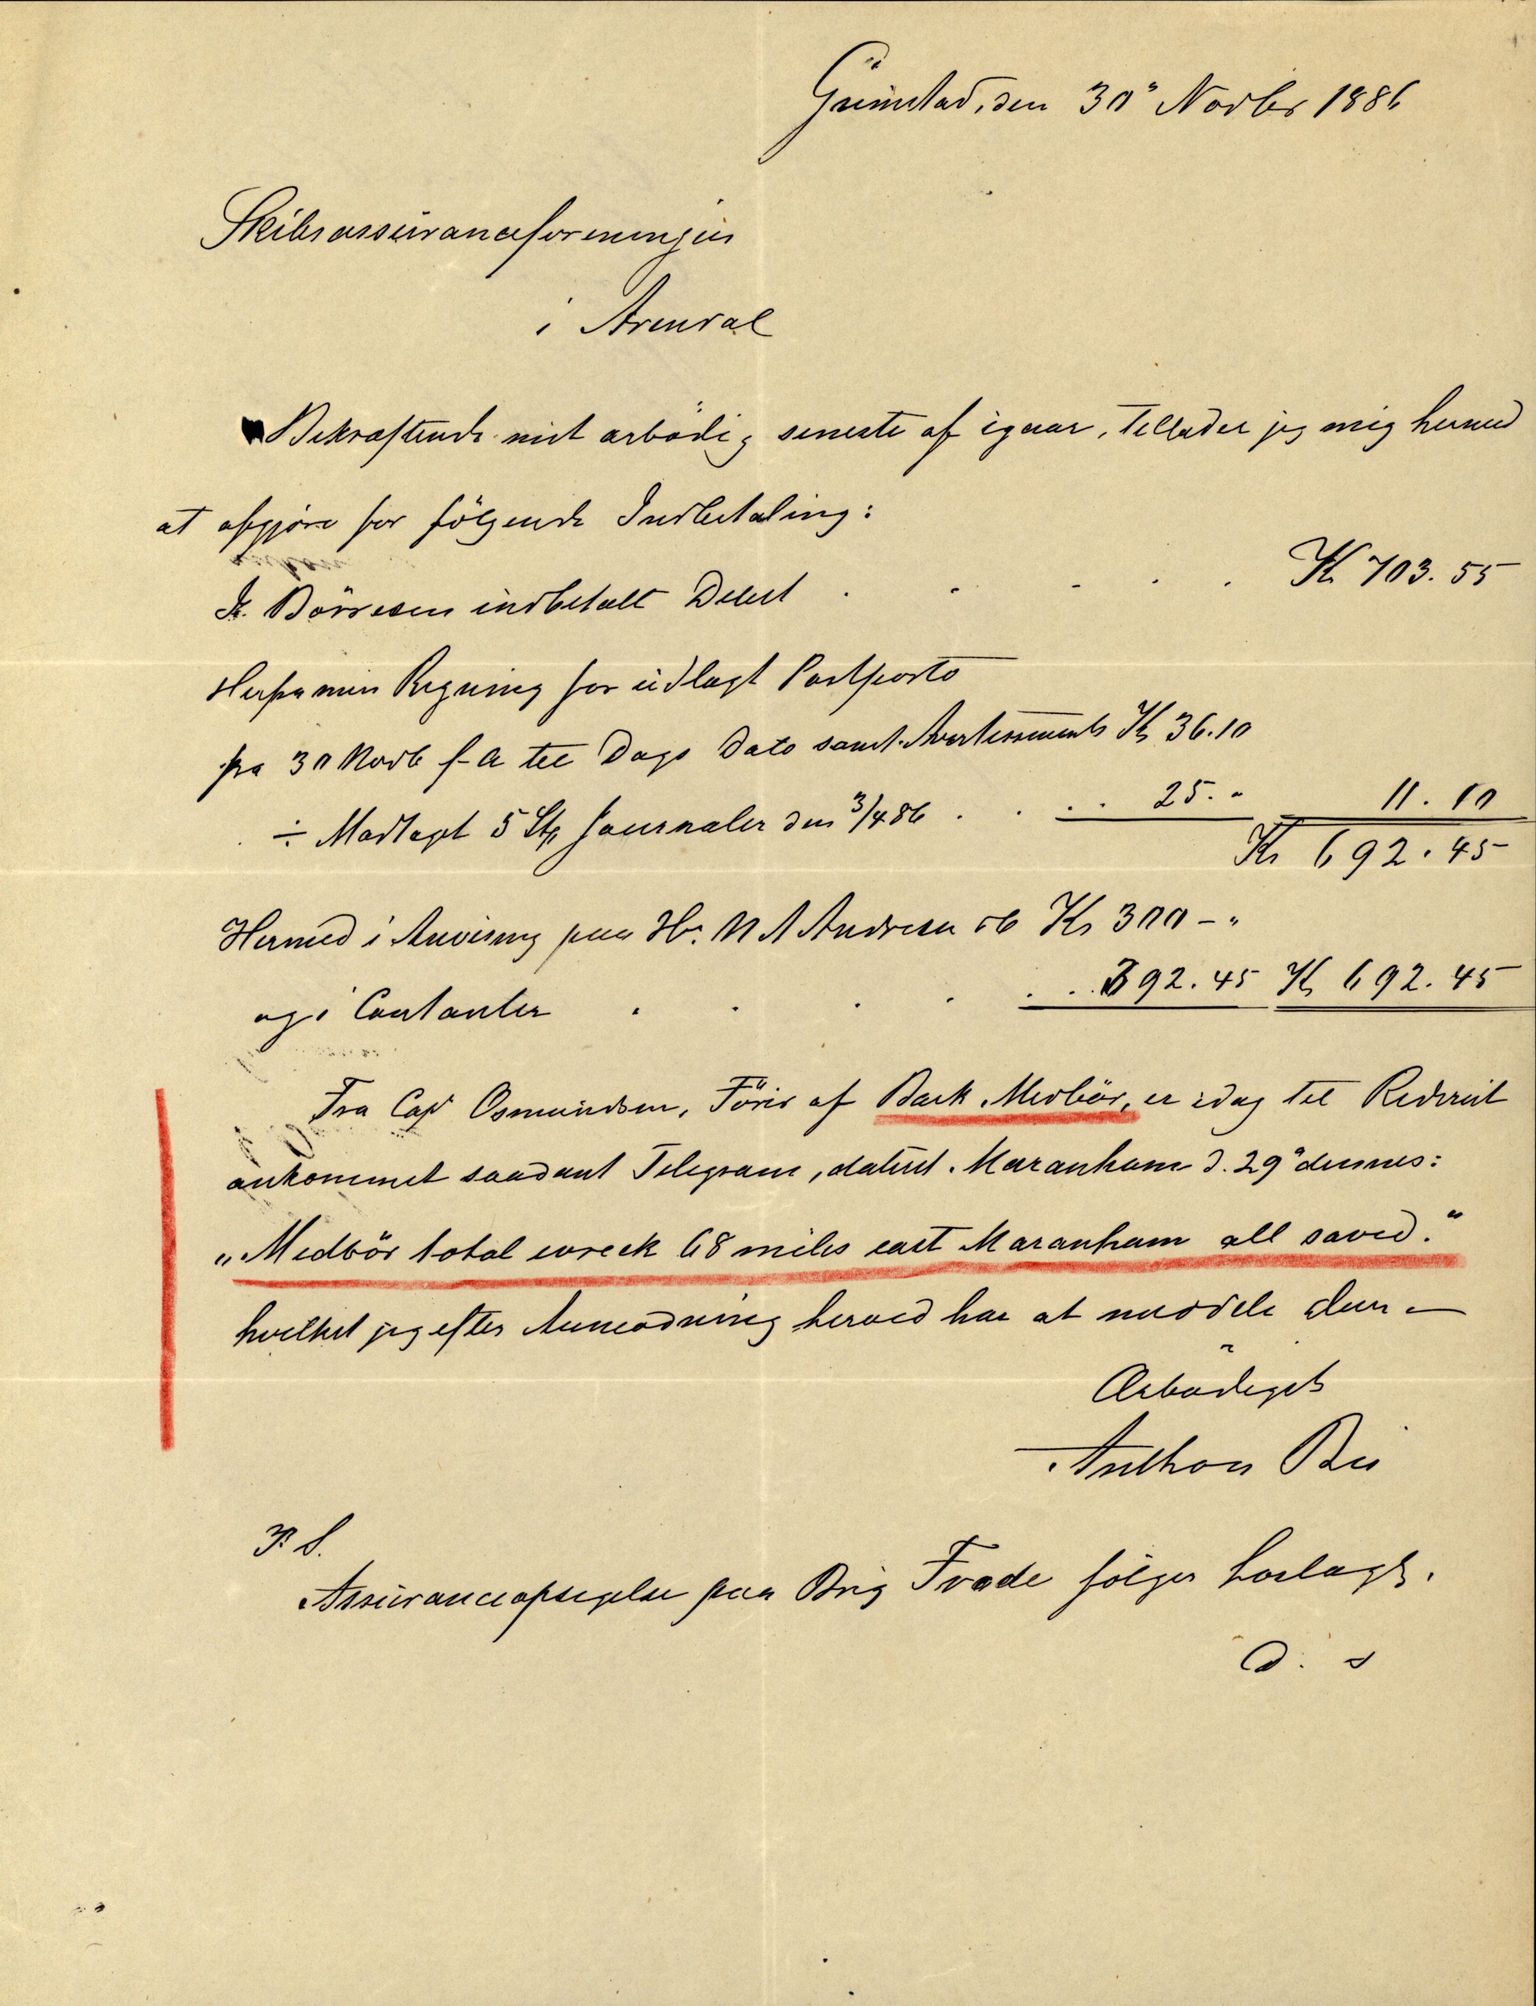 Grimstad, den 30' Novbr 1886
Skibsassuranceforeningen
i Arendal
Bekræftende mit ærbödig seneste af igaar, tillader jeg mig herved
at afgjöre for fölgende Indbetaling:
Börresen indbetalt Debet . . . . . Kr 703.55
Herfra min Regning for udlagt Postporto
fra 30 Novb f. A til Dags Dato samt Avertissements Kr 36.10
÷ Modtaget 5 Stk Journaler den 3/4 86 . . . . 25. " 11.10
Kr 692.45
Hermed i Anvisning paa Hr. N A Andresen Kr 300 - "
og i Contanter . . . . . . 392.45 Kr 692.45
Fra Cap Osmundsen, Förer af Bark Medbör, er idag til Rederiet
ankommet saadant Telegram, dateret Maranham d. 29' dennes:
„Medbör total wreck 68 miles east Maranham all saved."
hvilket jeg efter Anmodning herved har at meddele dem —
Ærbödigst
Anthon Bie
P. S.
Assuranceopsigelse paa Brig Trade fölger hoslagt.
D. s